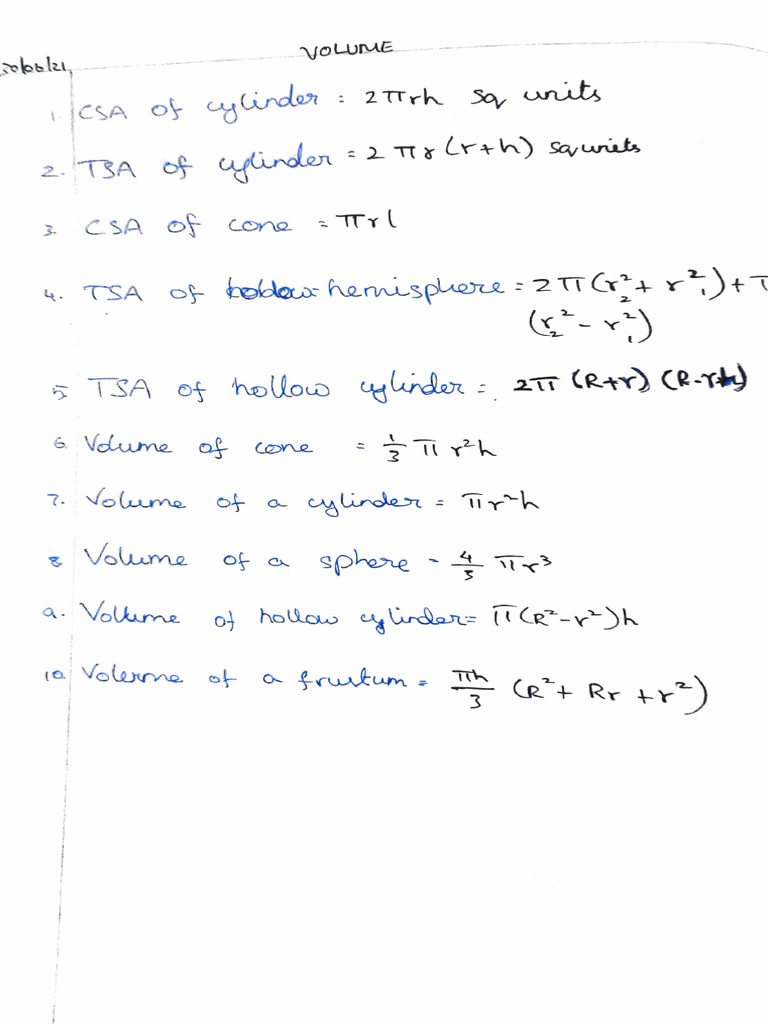 VOLUME
30/06/21
1. CSA of cylinder = 2πrh sq units
2. TSA of cylinder = 2πr(r+h) sq units
3. CSA of cone = πrl
4. TSA of hemisphere = 2π(r₂² + r₁²) + π
(r₂² - r₁²)
5. TSA of hollow cylinder = 2π (R+r) (R-r+h)
6. Volume of cone = 1/3 π r²h
7. Volume of a cylinder = πr²h
8 Volume of a sphere = 4/3 πr³
9. Volume of hollow cylinder = π(R²-r²)h
10 Volume of a frustum = πh/3 (R² + Rr + r²)